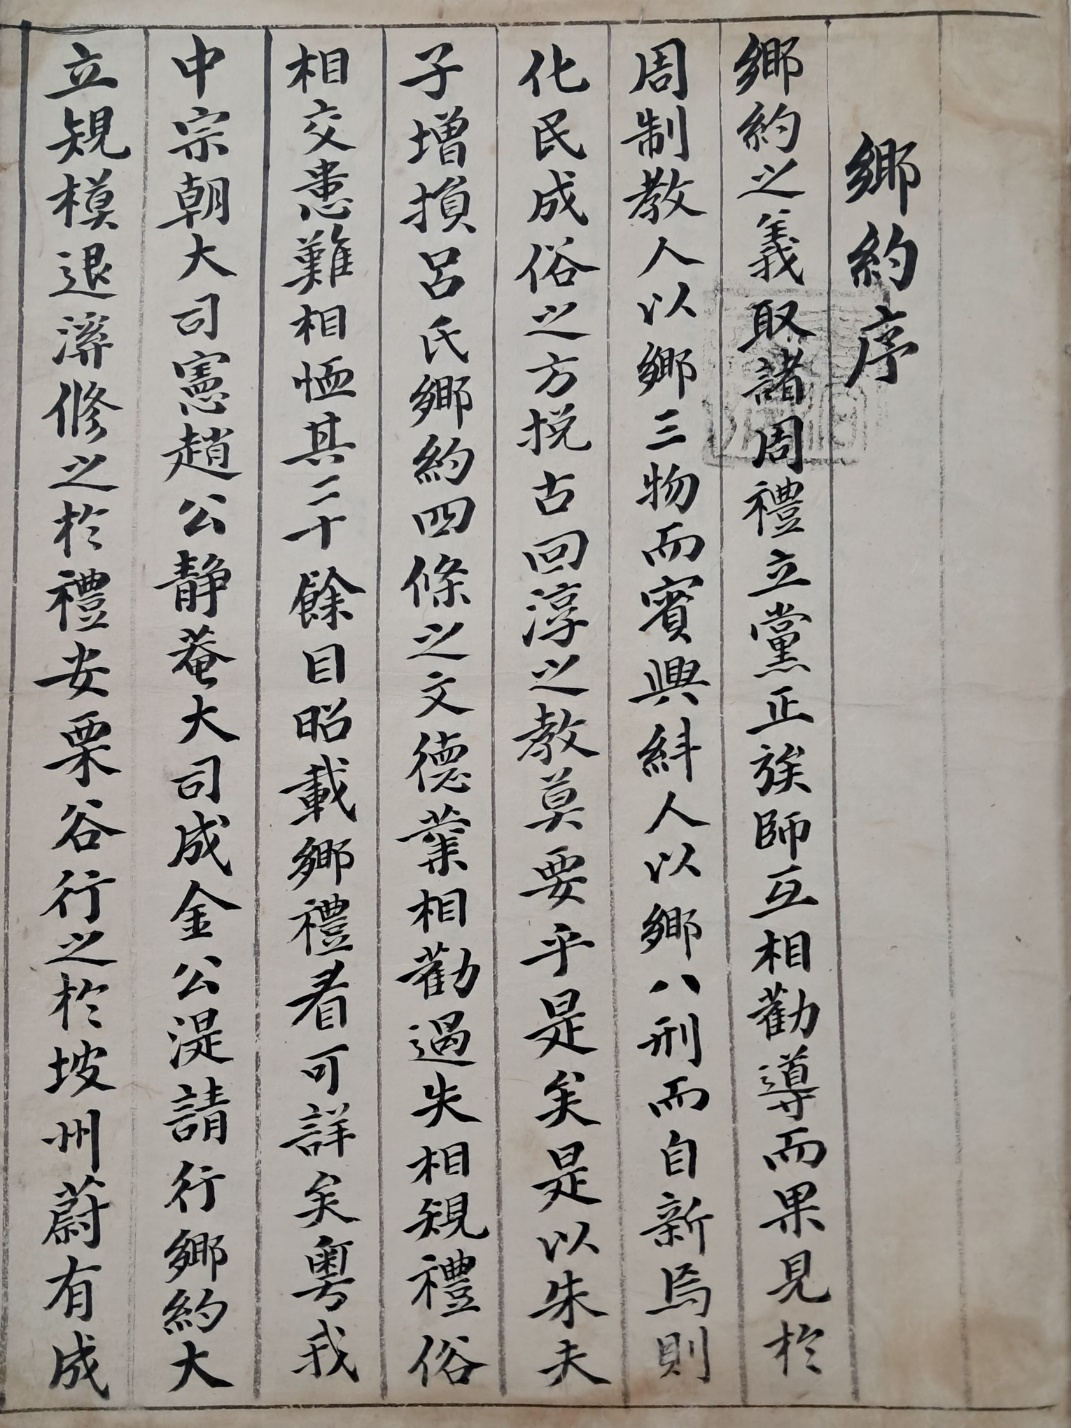 鄉約序
鄉約之義取諸周禮立黨正族師互相勸導而果見於
周制教人以鄉三物而賓興糾人以鄉八刑而自新焉則
化民成俗之方挽古回淳之教莫要乎是矣是以朱夫
子增損呂氏鄉約四條之文德業相勸過失相規禮俗
相交患難相恤其二十餘目昭載鄉禮看可詳矣粵我
中宗朝大司憲趙公靜菴大司成金公湜請行鄉約大
立規模退溪修之於禮安栗谷行之於坡州蔚有成